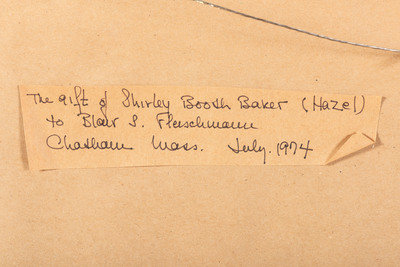 The gift of Shirley Booth Baker (Hazel)
to Blair S. Fleischmann
Chatham Mass. July. 1974